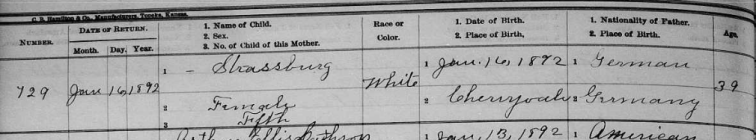 C. B. Hamilton & Co., Manufacturers, Topeka, Kansas.
NUMBER. DATE OF RETURN. Month. Day. Year. 1. Name of Child. 2. Sex. 3. No. of Child of this Mother. Race or Color. 1. Date of Birth. 2. Place of Birth, 1. Nationality of Father. 2. Place of Birth. Age
1 - Strassburg 1 Jan. 16, 1892 1 German
729 Jan 16, 1892 White 39
2 Female 2 Cherryvale 2 Germany
3 Fifth
1 Jan, 13, 1892 1 American